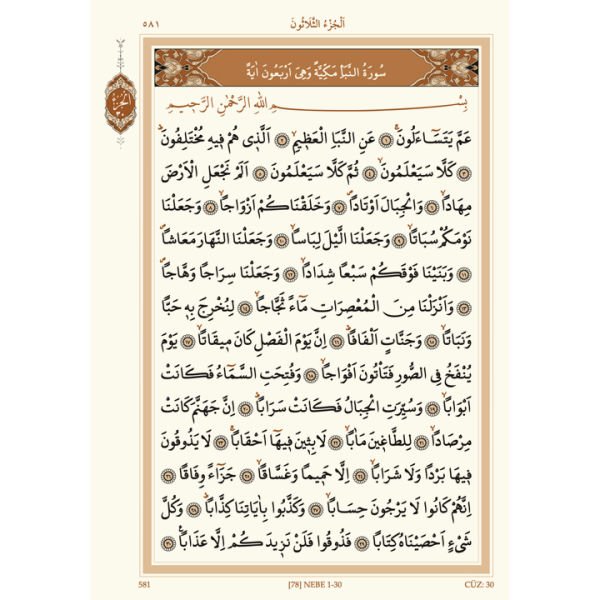 ٥٨١ اَلْجُزْءُ الثَّلَاثُونَ
سُورَةُ النَّبَأِ مَكِّيَّةٌ وَهِيَ اَرْبَعُونَ اٰيَةً
اَلْجُزْءُ
بِسْمِ اللّٰهِ الرَّحْمٰنِ الرَّحِيمِ
عَمَّ يَتَسَٓاءَلُونَۚ ﴿١﴾ عَنِ النَّبَأِ الْعَظِيمِۙ ﴿٢﴾ اَلَّذِي هُمْ فِيهِ مُخْتَلِفُونَۜ
﴿٣﴾ كَلَّا سَيَعْلَمُونَۙ ﴿٤﴾ ثُمَّ كَلَّا سَيَعْلَمُونَ ﴿٥﴾ اَلَمْ نَجْعَلِ الْاَرْضَ
مِهَاداًۙ ﴿٦﴾ وَالْجِبَالَ اَوْتَاداًۖ ﴿٧﴾ وَخَلَقْنَاكُمْ اَزْوَاجاًۙ ﴿٨﴾ وَجَعَلْنَا
نَوْمَكُمْ سُبَاتاًۙ ﴿٩﴾ وَجَعَلْنَا الَّيْلَ لِبَاساًۙ ﴿١٠﴾ وَجَعَلْنَا النَّهَارَ مَعَاشاًۖ
﴿١١﴾ وَبَنَيْنَا فَوْقَكُمْ سَبْعاً شِدَاداًۙ ﴿١٢﴾ وَجَعَلْنَا سِرَاجاً وَهَّاجاًۖ
﴿١٣﴾ وَاَنْزَلْنَا مِنَ الْمُعْصِرَاتِ مَٓاءً ثَجَّاجاًۙ ﴿١٤﴾ لِنُخْرِجَ بِهِ حَباًّ
وَنَبَاتاًۙ ﴿١٥﴾ وَجَنَّاتٍ اَلْفَافاًۜ ﴿١٦﴾ اِنَّ يَوْمَ الْفَصْلِ كَانَ مِيقَاتاًۙ ﴿١٧﴾ يَوْمَ
يُنْفَخُ فِي الصُّورِ فَتَأْتُونَ اَفْوَاجاًۙ ﴿١٨﴾ وَفُتِحَتِ السَّمَٓاءُ فَكَانَتْ
اَبْوَاباًۙ ﴿١٩﴾ وَسُيِّرَتِ الْجِبَالُ فَكَانَتْ سَرَاباًۜ ﴿٢٠﴾ اِنَّ جَهَنَّمَ كَانَتْ
مِرْصَاداًۙ ﴿٢١﴾ لِلطَّاغِينَ مَاٰباًۙ ﴿٢٢﴾ لَابِثِينَ فِيهَٓا اَحْقَاباًۚ ﴿٢٣﴾ لَا يَذُوقُونَ
فِيهَا بَرْداً وَلَا شَرَاباًۙ ﴿٢٤﴾ اِلَّا حَمِيماً وَغَسَّاقاًۙ ﴿٢٥﴾ جَزَٓاءً وِفَاقاًۜ ﴿٢٦﴾
اِنَّهُمْ كَانُوا لَا يَرْجُونَ حِسَاباًۙ ﴿٢٧﴾ وَكَذَّبُوا بِاٰيَاتِنَا كِذَّاباًۜ ﴿٢٨﴾ وَكُلَّ
شَيْءٍ اَحْصَيْنَاهُ كِتَاباًۙ ﴿٢٩﴾ فَذُوقُوا فَلَنْ نَزِيدَكُمْ اِلَّا عَذَاباًۚ ﴿٣٠﴾
581 [78] NEBE 1-30 CÜZ: 30